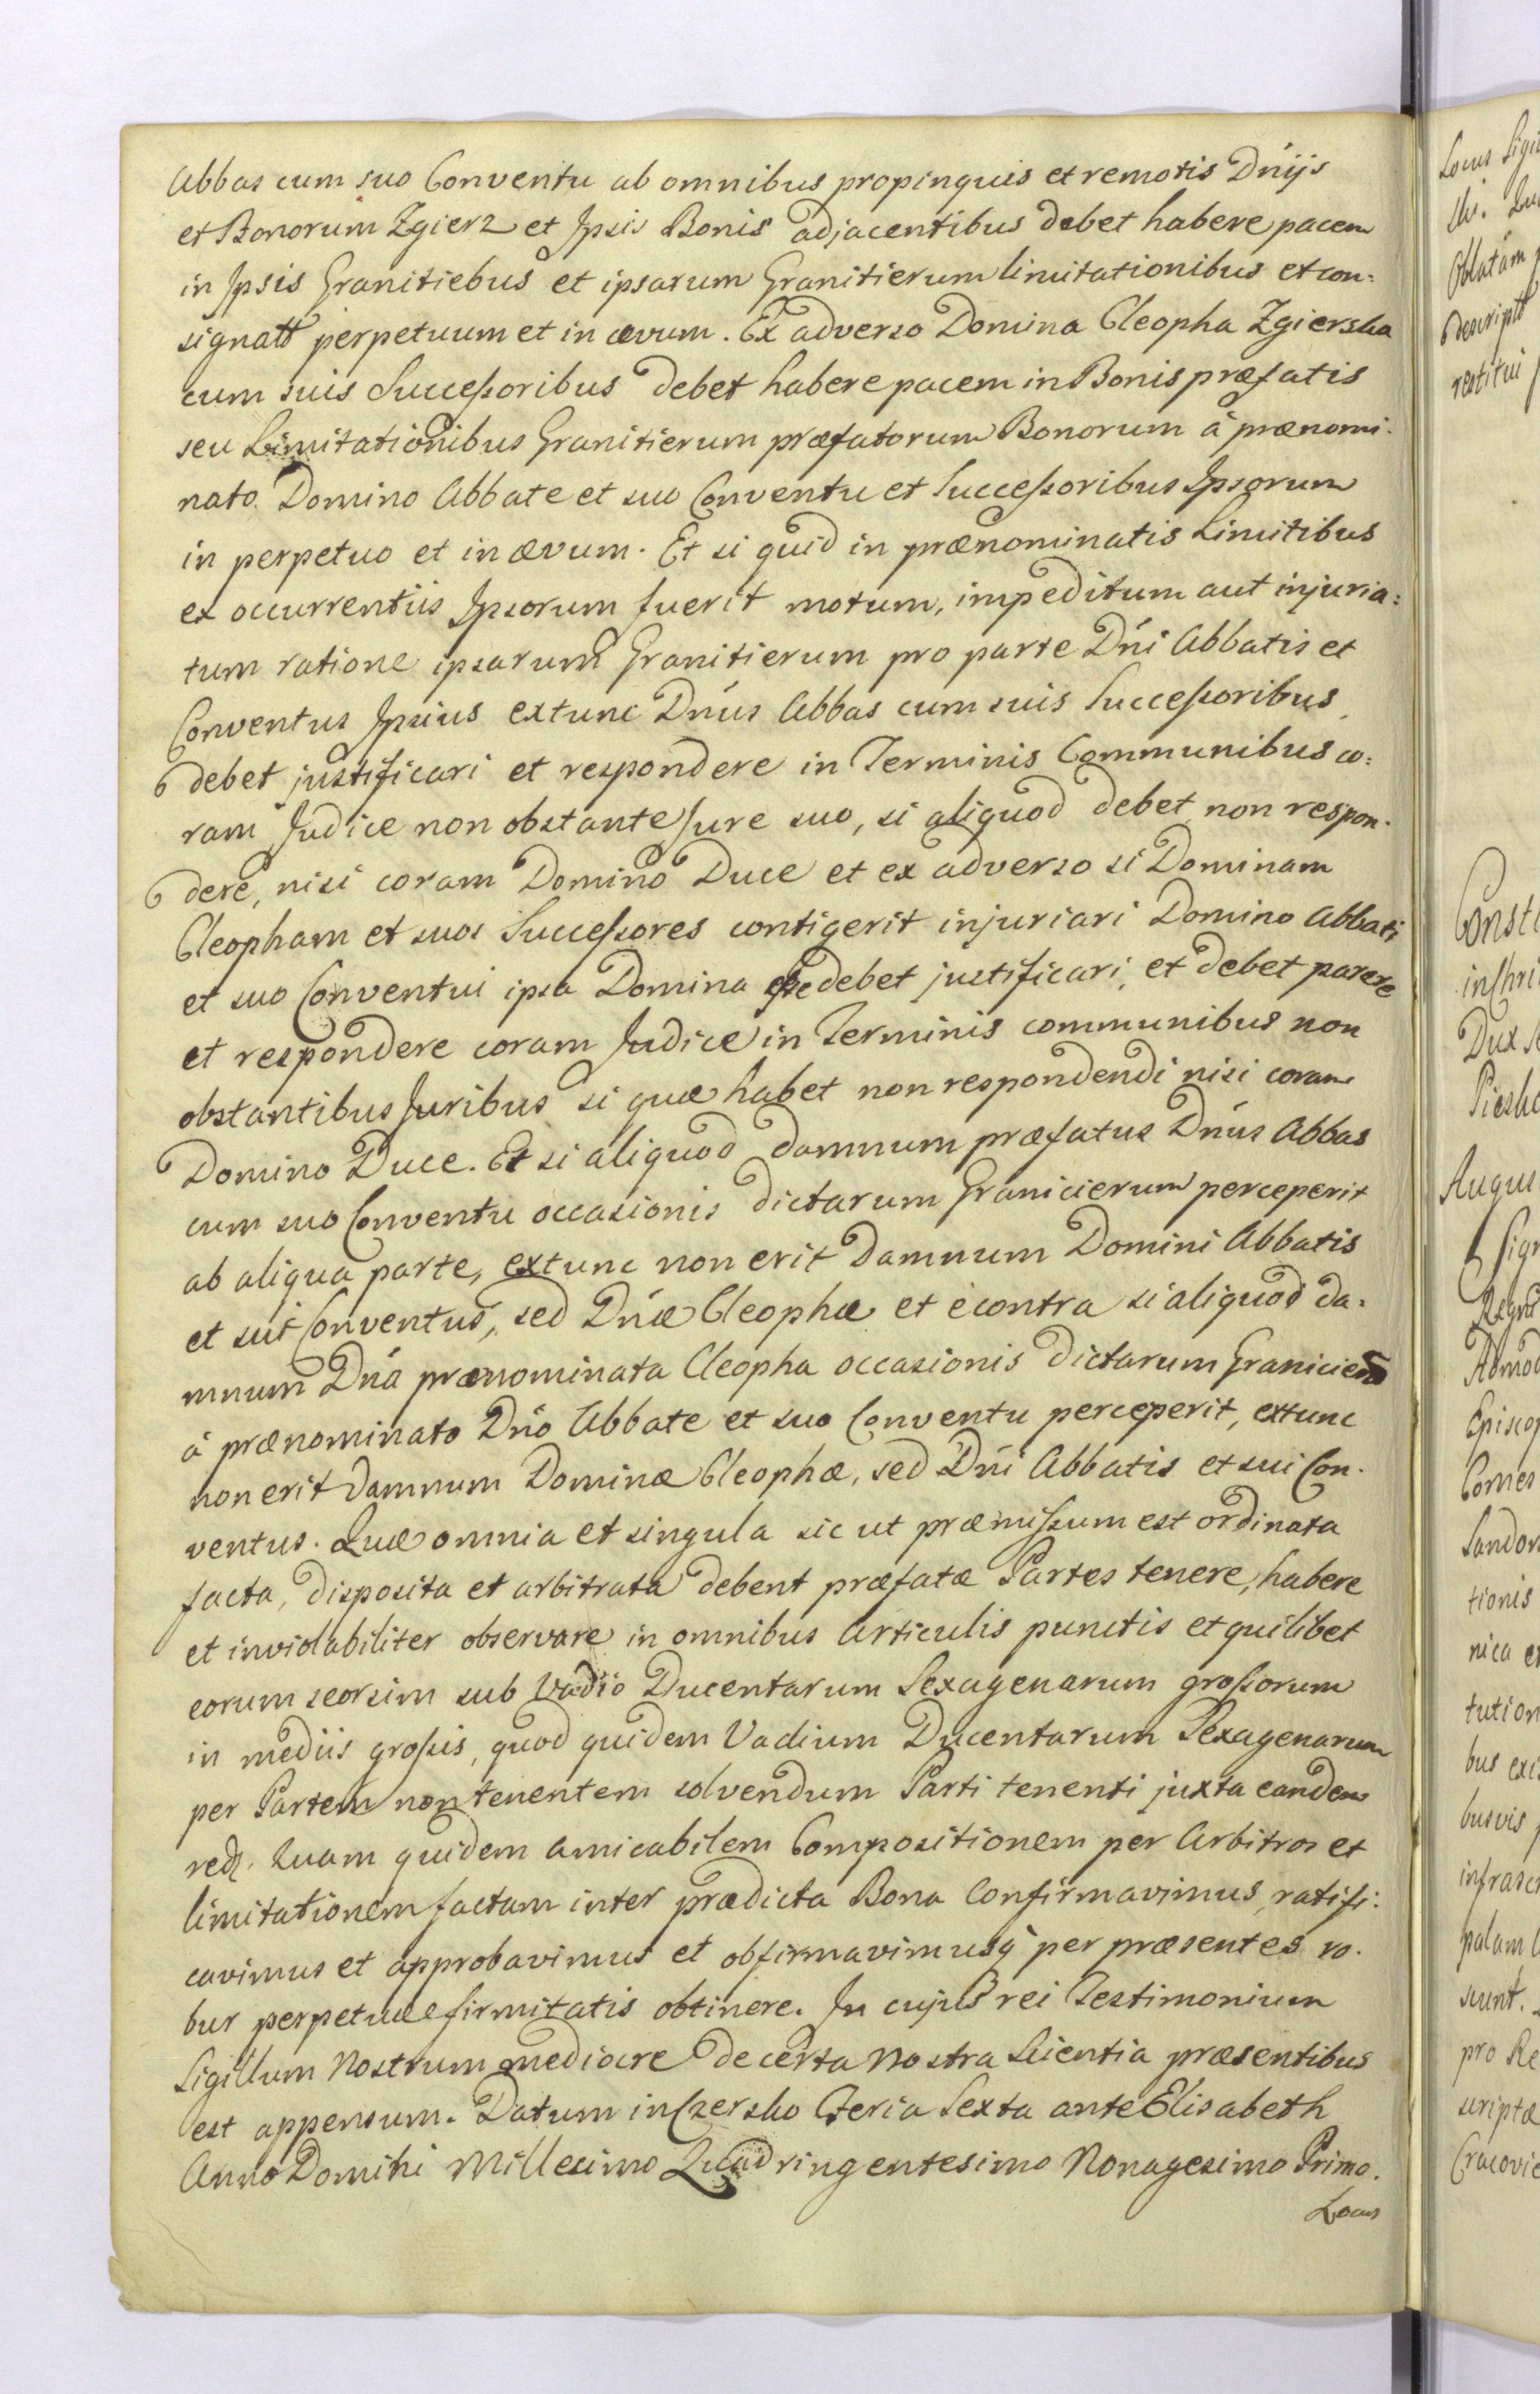 Abbas cum suo Conventu ab omnibus propinquis et remotis Dńijs
et Bonorum Zgierz et Ipsis Bonis adjacentibus debet habere pacem
in Ipsis Granitiebus et ipsarum Granitierum limitationibus et con:
signatt perpetuum et in ævum. Ex adverso Domina Cleopha Zgierska
cum suis Successoribus debet habere pacem in Bonis præfatis
seu Limitationibus Granitierum præfatorum Bonorum à prænomi-
nato Domino Abbate et suo Conventu et Successoribus Ipsorum
in perpetuo et in ævum. Et si quid in prænominatis Limitibus
ex occurrentiis Ipsorum fuerit motum, impeditum aut injuria:
tum ratione ipsarum Granitierum pro parte Dńi Abbatis et
Conventus Ipsius extunc Dńus Abbas cum suis Successoribus
debet justificari et respondere in Terminis Communibus co:
ram Judice non obstante Jure suo, si aliquod debet non respon-
dere, nisi coram Domino Duce et ex adverso si Dominam
Cleopham et suos Successores contigerit injuriari Domino Abbati
et suo Conventui ipsa Domina debet justificari, et debet parere
et respondere coram Judice in Terminis communibus non
obstantibus Juribus si quæ habet non respondendi nisi coram
Domino Duce. Et si aliquod damnum præfatus Dńus Abbas
cum suo Conventu occasionis dictarum Granicierum perceperit
ab aliqua parte, extunc non erit damnum Domini Abbatis
et sui Conventus, sed Dńæ Cleophæ et econtra si aliquod da-
mnum Dńa prænominata Cleopha occasionis dictarum Granicierū
à prænominato Dńo Abbate et suo Conventu perceperit, extunc
non erit damnum Dominæ Cleophæ, sed Dńi Abbatis et sui Con-
ventus. Quæ omnia et singula sic ut præmissum est ordinata
facta, disposita et arbitrata debent præfatæ Partes tenere, habere
et inviolabiliter observare in omnibus Articulis punctis et quilibet
eorum seorsim sub Vadio Ducentarum Sexagenarum grossorum
in mediis grossis, quod quidem Vadium Ducentarum Sexagenarum
per Partem non tenentem solvendum Parti tenenti juxta eandem
Quam quidem amicabilem Compositionem per Arbitros et
limitationem factam inter prædicta Bona Confirmavimus, ratifi:
cavimus et approbavimus et obfirmavimusq́ per præsentes ro-
bur perpetuæ firmitatis obtinere. In cujus rei Testimonium
Sigillum Nostrum mediocre de certa Nostra Scientia præsentibus
est appensum. Datum in Czersko Feria Sexta ante Elisabeth
Anno Domini Millesimo Quadringentesimo Nonagesimo Primo.
Locus